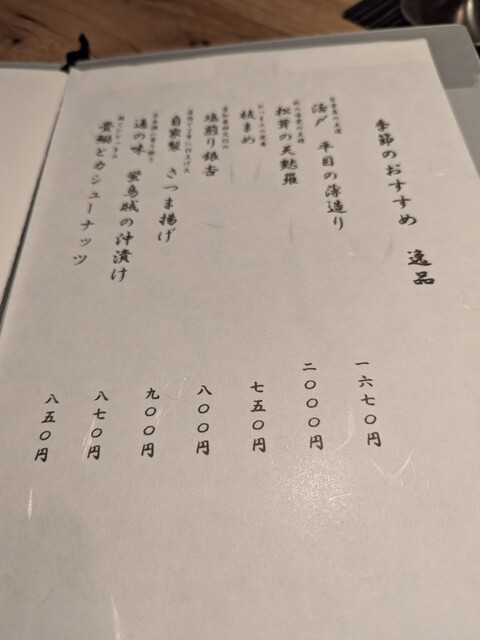 季節のおすすめ 逸品
活〆 平目の薄造り 一六七〇円
松茸の天麩羅 二〇〇〇円
枝まめ 七五〇円
塩煎り銀杏 八〇〇円
自家製 さつま揚げ 九〇〇円
通の味 蛍烏賊の沖漬け 八七〇円
カシューナッツ 八五〇円